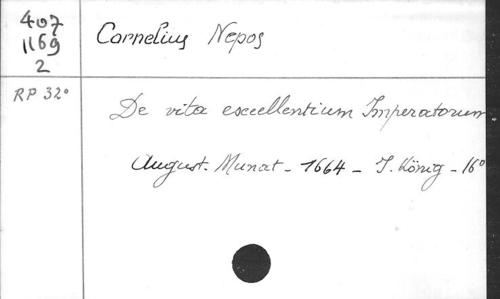 407
1169
2
Cornelius Nepos
RP 32°
De vita excellentium Imperatorum
August. Munat - 1664 - J. König - 16°